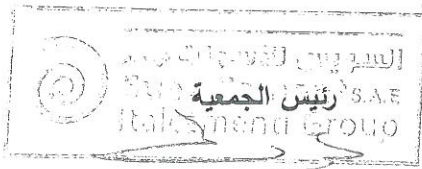 السويس للأسمنت
رئيس الجمعية
S.A.E
Italcementi Group